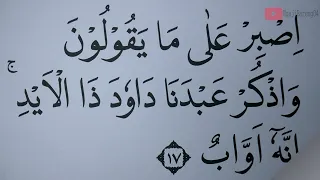 اِصْبِرْ عَلٰى مَا يَقُوْلُوْنَ
وَاذْكُرْ عَبْدَنَا دَاوٗدَ ذَا الْاَيْدِۚ
اِنَّهٗٓ اَوَّابٌ ١٧